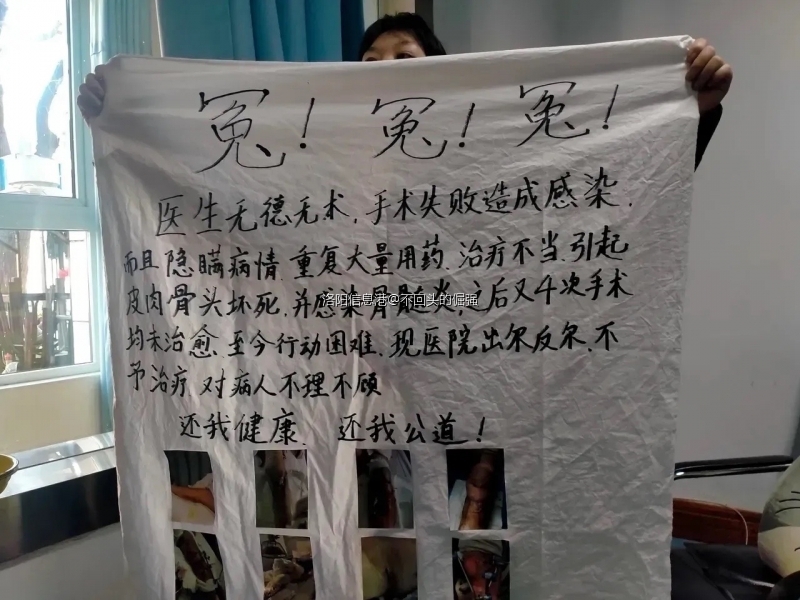 冤！冤！冤！
医生无德无术，手术失败造成感染，
而且隐瞒病情，重复大量用药，治疗不当，引起
皮肉骨头坏死，并感染骨髓炎，之后又4次手术
均未治愈，至今行动困难，现医院出尔反尔，不
予治疗，对病人不理不顾
还我健康，还我公道！
洛阳信息港@不回头的倔强